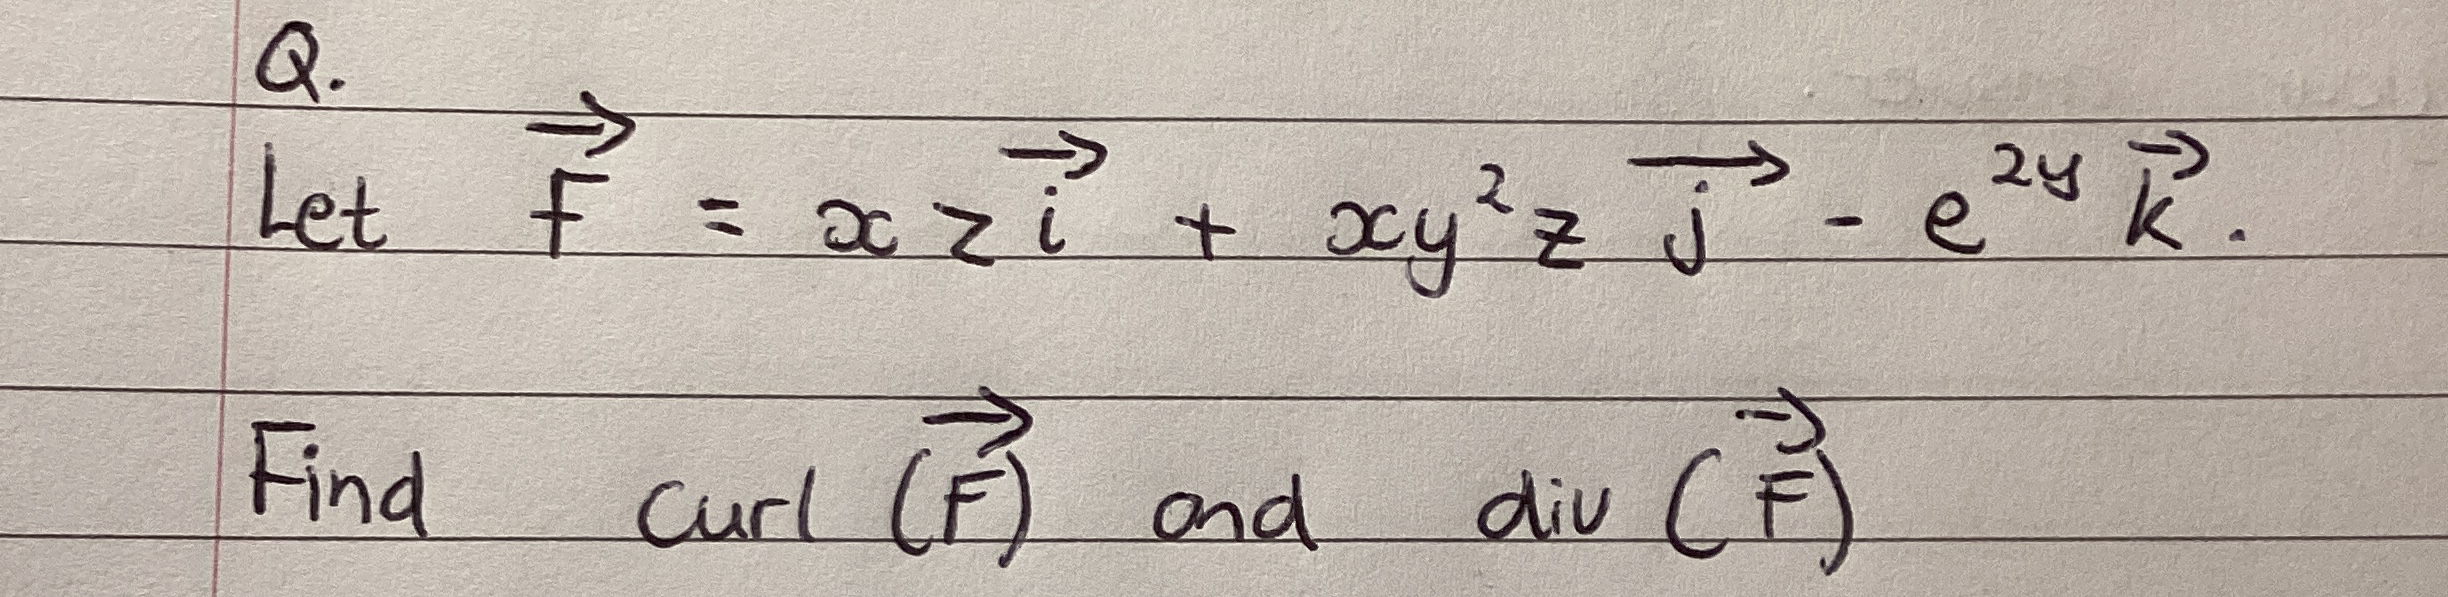 Q.
Let F⃗ = xz i⃗ + xy²z j⃗ - e²ʸ k⃗.
Find curl (F⃗) and div (F⃗)